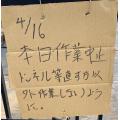 4/16
本日作業中止
トンネル等進すか以
外作業しないよう
に。